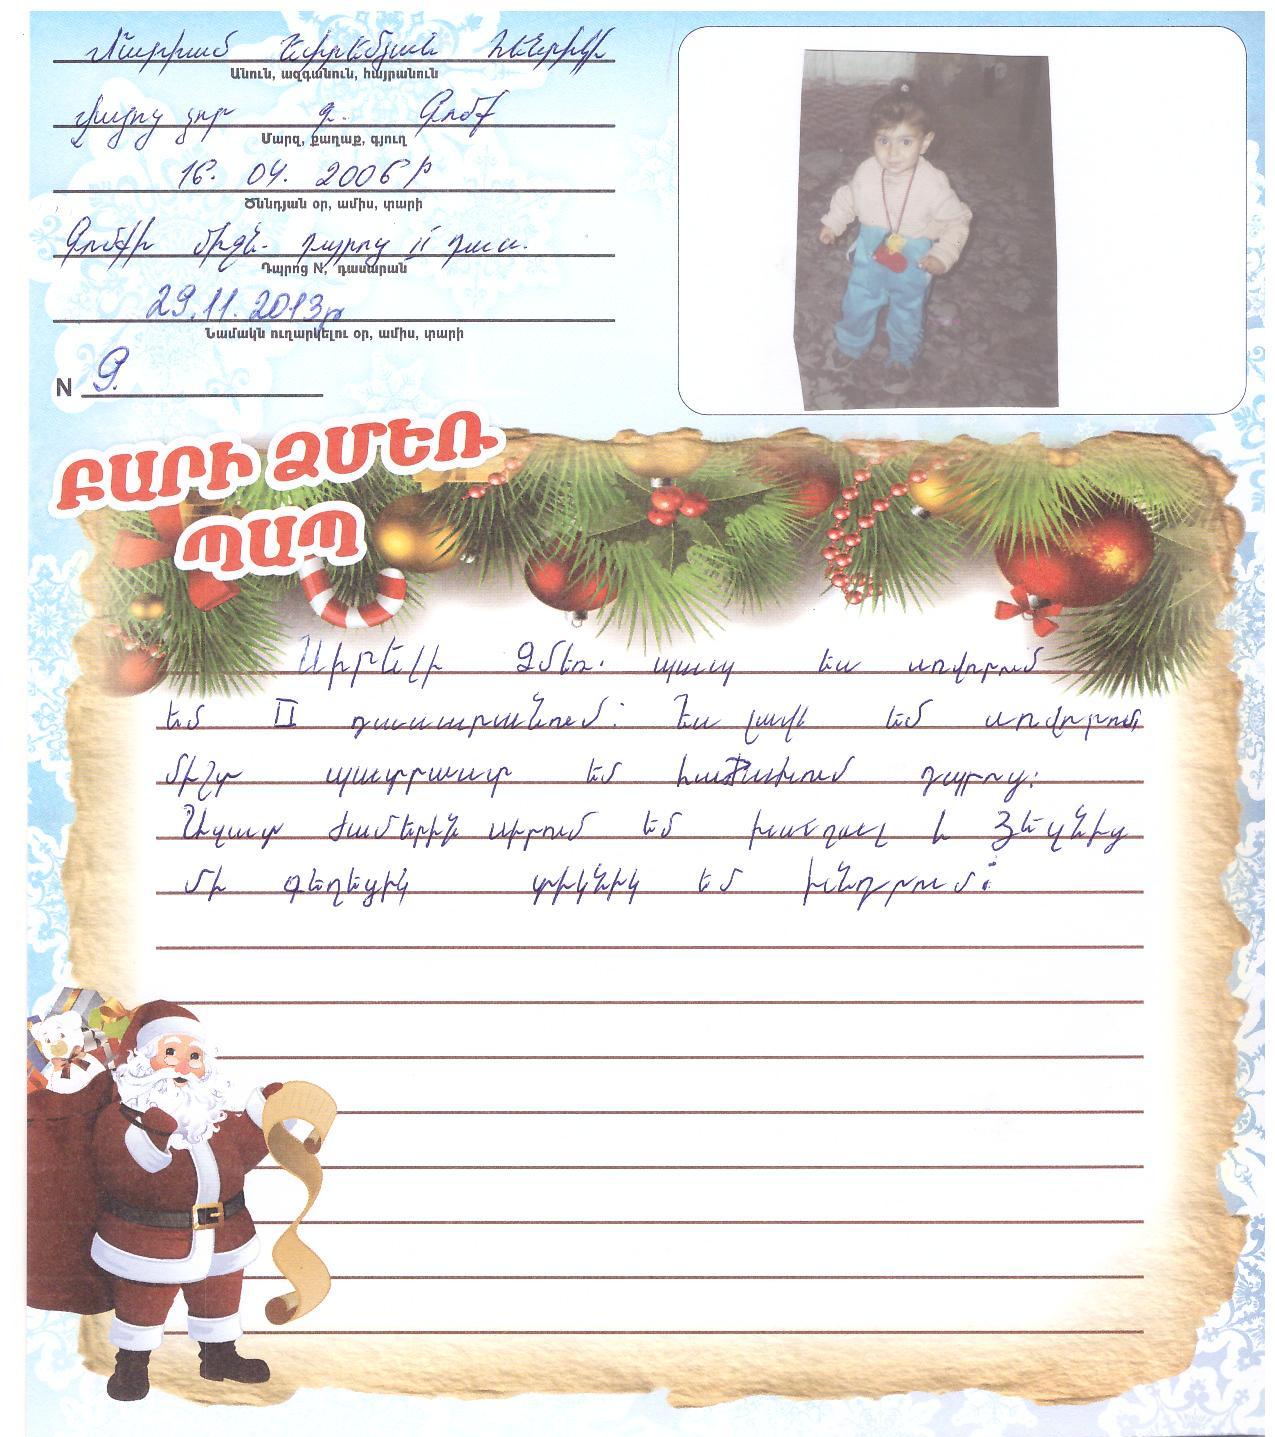 Մարիամ Եփրեմյան Հենրիկի
Անուն, ազգանուն, հայրանուն
Վայոց ձոր գ. Գոմք
Մարզ, քաղաք, գյուղ
16. 04. 2006թ
Ծննդյան օր, ամիս, տարի
Գոմքի միջն. դպրոց II դաս.
Դպրոց N, դասարան
29.11.2013թ
Նամակն ուղարկելու օր, ամիս, տարի
N 9.
ԲԱՐԻ ՁՄԵՌ
ՊԱՊ
Սիրելի Ձմեռ. պապ ես սովորում
եմ II դասարանում: Ես լավ եմ սովորում,
միշտ պատրաստ եմ հաճախում դպրոց:
Ազատ ժամերին սիրում եմ խաղալ և Ձեզնից
մի գեղեցիկ տիկնիկ եմ խնդրում: